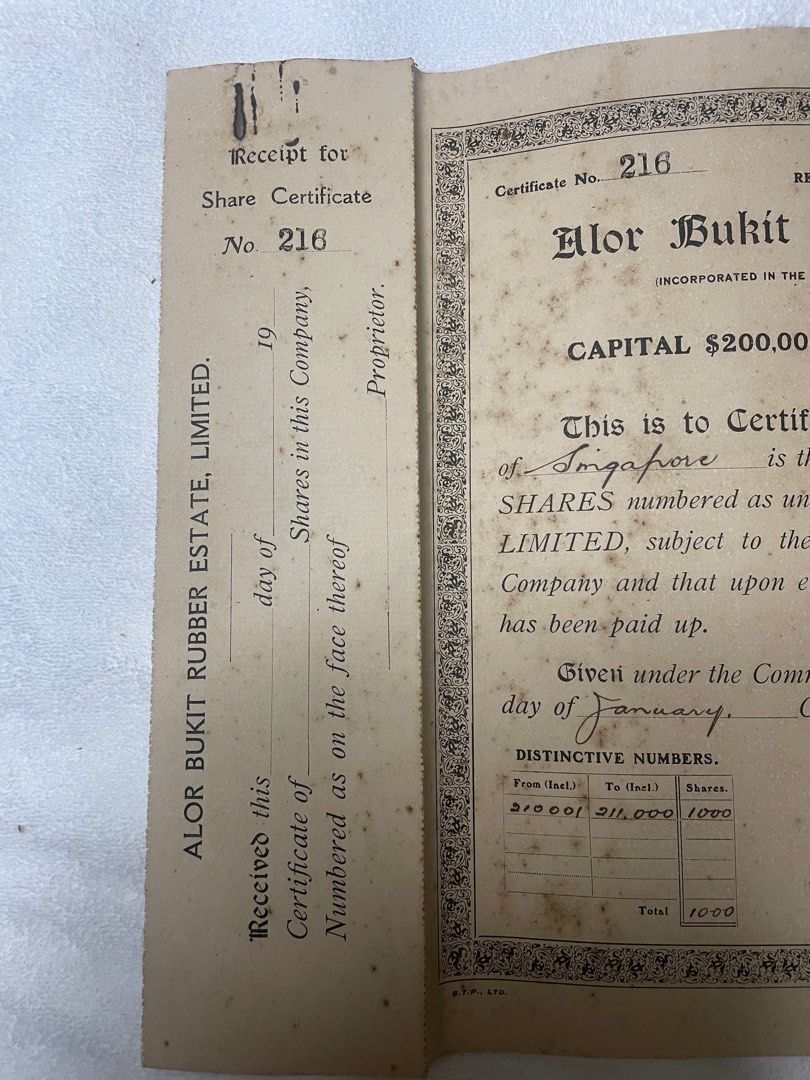 Receipt for
Share Certificate
No. 216
ALOR BUKIT RUBBER ESTATE, LIMITED.
Received this day of 19
Certificate of Shares in this Company,
Numbered as on the face thereof
Proprietor.
Certificate No. 216
RE
Alor Bukit
(INCORPORATED IN THE
CAPITAL $200,00
This is to Certif
of Singapore is th
SHARES numbered as un
LIMITED, subject to the
Company and that upon e
has been paid up.
Given under the Com
day of January.
DISTINCTIVE NUMBERS.
From (Incl.) To (Incl.) Shares.
210001 211,000 1000
Total 1000
S.T.P., LTD.